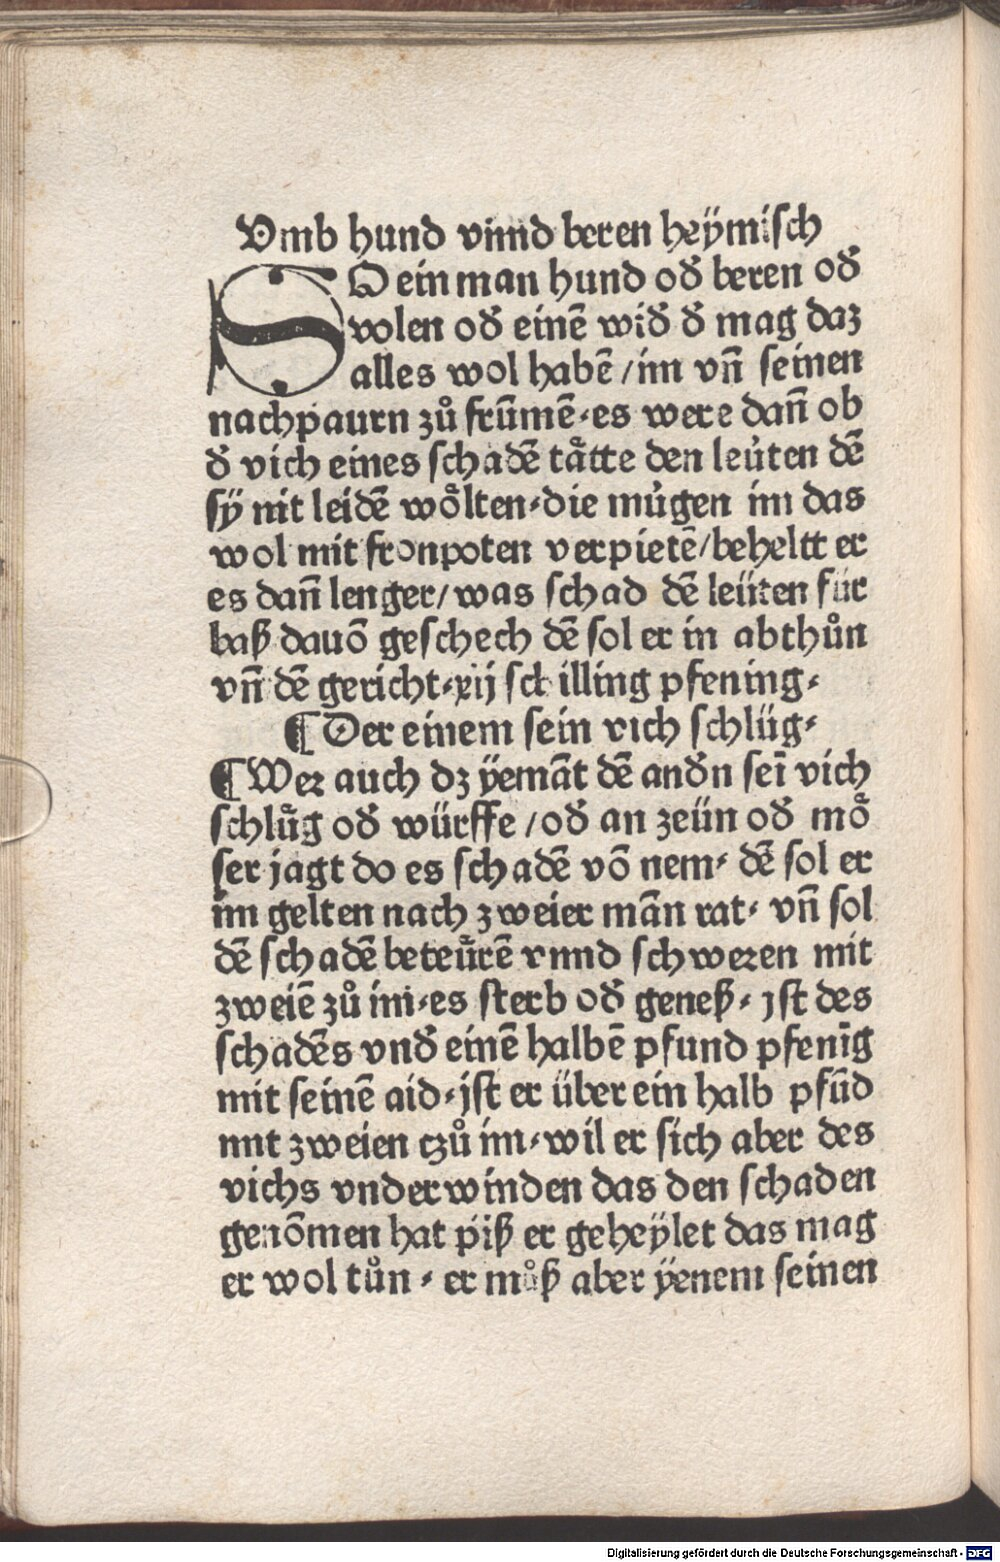 Vmb hund vnnd beren heÿmisch
SO ein man hund od̄ beren od̄
volen od̄ einē wid̄ d̄ mag daz
alles wol habē / im vn̄ seinen
nachpaurn zů frūmē. es were dan̄ ob
d̄ vich eines schadē taͤtte den leu̇ten dē
sÿ nit leidē woͤlten. die mu̇gen im das
wol mit fronpoten verpietē / beheltt er
es dan̄ lenger / was schad dē leüten für
baß dauō geschech dē sol er in abthůn
vn̄ dē gericht. xij schilling pfening.
¶ Der einem sein vich schlüg.
¶ Wer auch dz ÿemāt dē and̄n seī vich
schlüg od̄ würffe / od̄ an zeün od̄ moͤ
ser jagt do es schadē vō nem. dē sol er
im gelten nach zweier mān rat. vn̄ sol
dē schadē beteürē vnnd schweren mit
zweiē zů im. es sterb od̄ geneß. jst des
schadēs vnd̄ einē halbē pfund pfenīg
mit seinē aid. jst er über ein halb pfūd
mit zweien czů im. wil er sich aber des
vichs vnderwinden das den schaden
genōmen hat piß er geheÿlet das mag
er wol tůn. er můß aber ÿenem seinen
Digitalisierung gefördert durch die Deutsche Forschungsgemeinschaft - DFG